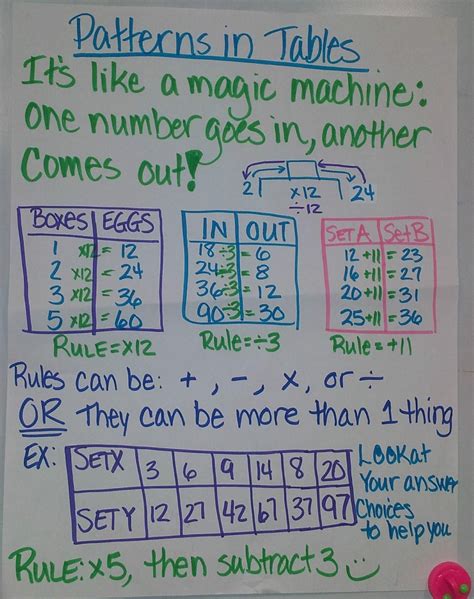 Patterns in Tables
It's like a magic machine:
one number goes in, another
comes out!
2 x12 ÷12 24
BOXES EGGS
1 x12 = 12
2 x12 = 24
3 x12 = 36
5 x12 = 60
RULE=x12
IN OUT
18 ÷3 = 6
24 ÷3 = 8
36 ÷3 = 12
90 ÷3 = 30
Rule=÷3
SET A Set B
12 +11 = 23
16 +11 = 27
20 +11 = 31
25 +11 = 36
Rule = +11
Rules can be: +, -, x, or ÷
OR They can be more than 1 thing
EX:
SET X 3 6 9 14 8 20
SET Y 12 27 42 67 37 97
Look at
Your answer
Choices
to help you
RULE: x5, then subtract 3